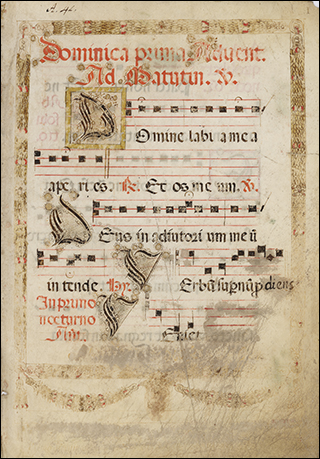 Dominica prima Advent.
Ad Matutin. ℣.
Domine labia mea
aperies. ℟. Et os meum. ℣.
Deus in adjutorium meū
intende. Hy. Verbū supnū pdiens
In primo
nocturno